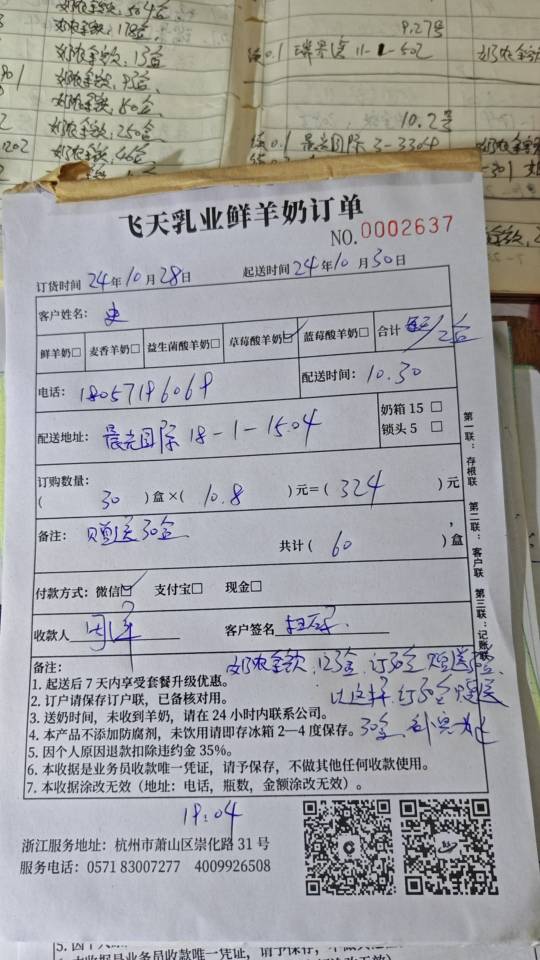 奶农全款,
奶农全款, 178盒
奶农全款, 13盒
奶农全款,
奶农全款, 80盒
奶农全款, 250盒
1202 奶农全款, 46盒
9.27号
11-1-502
10.2号
晨光国际 3-3304
飞天乳业鲜羊奶订单
NO.0002637
订货时间 24年10月28日 起送时间 24年10月30日
客户姓名: 史
鲜羊奶□ 麦香羊奶□ 益生菌酸羊奶□ 草莓酸羊奶☑ 蓝莓酸羊奶□ 合计 2盒
电话: 18057196068 配送时间: 10.30
配送地址: 晨光国际 18-1-1504 奶箱 15 □
锁头 5 □
订购数量:
( 30 )盒×( 10.8 )元=( 324 )元
备注: 赠送30盒
共计( 60 )盒
付款方式: 微信☑ 支付宝□ 现金□
收款人 客户签名
第一联:存根联 第二联:客户联 第三联:记账联
备注: 奶农全款, 123盒, 订30盒赠送30盒
1. 起送后 7 天内享受套餐升级优惠。
2. 订户请保存订户联,已备核对用。 订30盒赠送
3. 送奶时间,未收到羊奶,请在 24 小时内联系公司。
4. 本产品不添加防腐剂,未饮用请即存冰箱 2—4 度保存。 30盒,
5. 因个人原因退款扣除违约金 35%。
6. 本收据是业务员收款唯一凭证,请予保存,不做其他任何收款使用。
7. 本收据涂改无效(地址:电话,瓶数,金额涂改无效)。
18:04
浙江服务地址:杭州市萧山区崇化路 31 号
服务电话:0571 83007277 4009926508